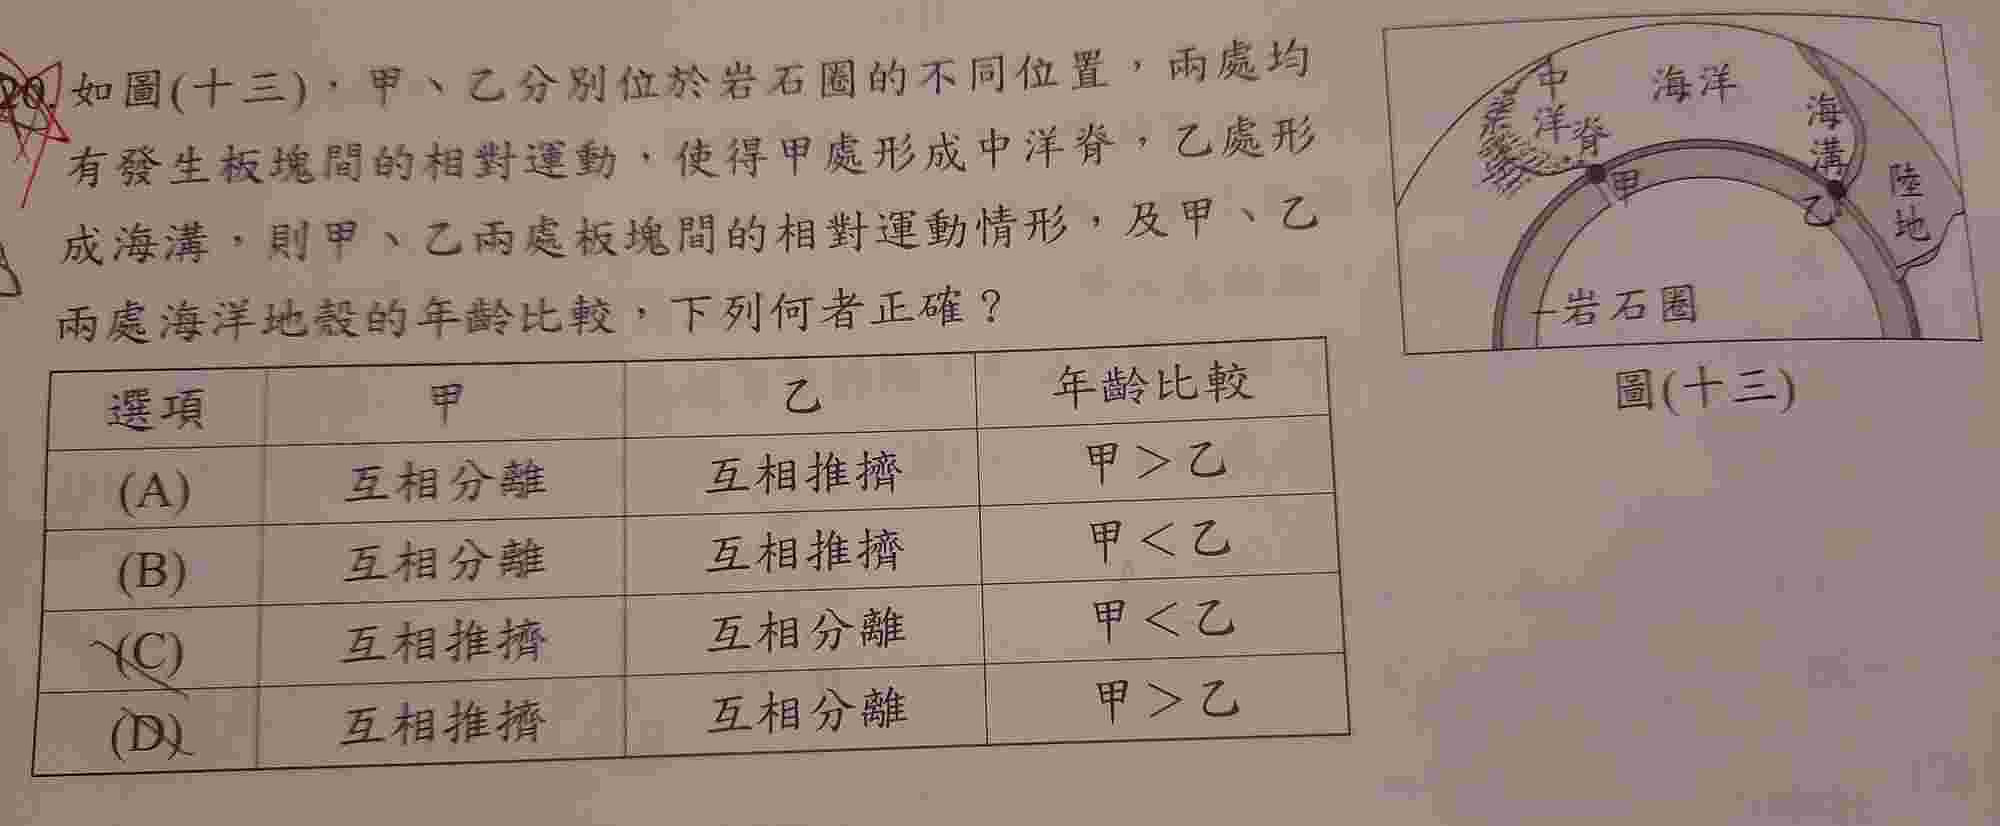 20. 如圖(十三)，甲、乙分別位於岩石圈的不同位置，兩處均
有發生板塊間的相對運動，使得甲處形成中洋脊，乙處形
成海溝，則甲、乙兩處板塊間的相對運動情形，及甲、乙
兩處海洋地殼的年齡比較，下列何者正確？
選項 甲 乙 年齡比較
(A) 互相分離 互相推擠 甲＞乙
(B) 互相分離 互相推擠 甲＜乙
(C) 互相推擠 互相分離 甲＜乙
(D) 互相推擠 互相分離 甲＞乙
中洋脊
海洋
海溝
陸地
甲
乙
岩石圈
圖(十三)